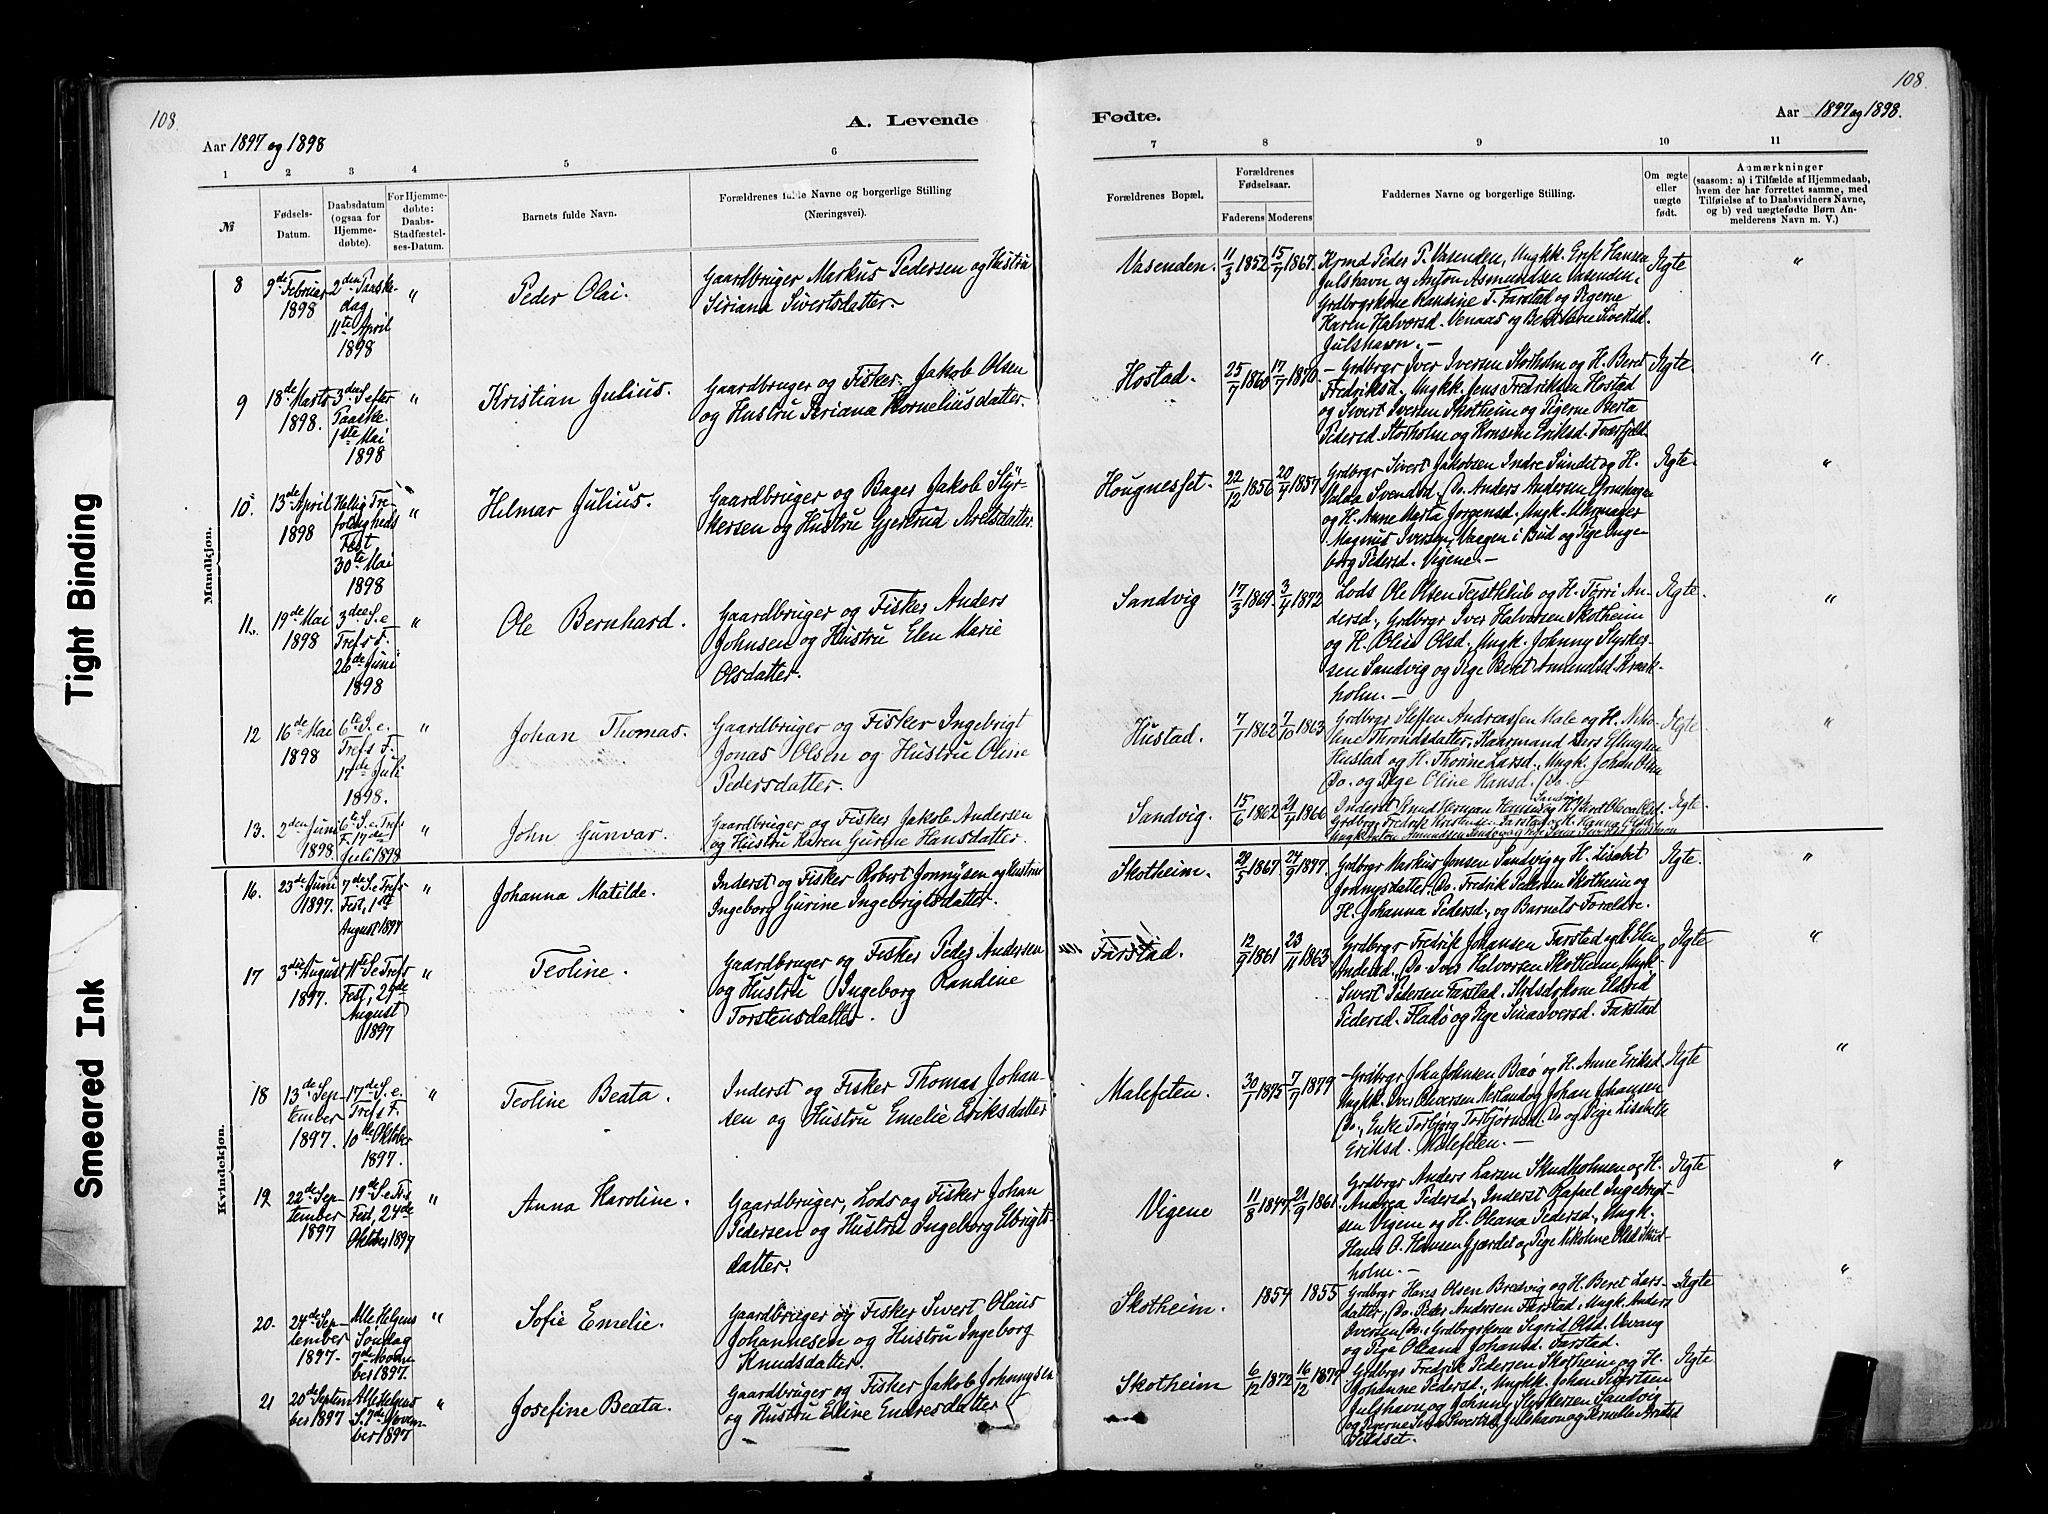 108.
108.
A. Levende
Fødte.
Aar 1897 og 1898
Aar 1897 og 1898.
1 2 3 4 5 6
7 8 9 10 11
№
Fødsels-
Datum.
Daabsdatum
(ogsaa for
Hjemme-
døbte).
For Hjemme-
døbte:
Daabs-
Stadfæstel-
ses-Datum.
Barnets fulde Navn.
Forældrenes fulde Navne og borgerlige Stilling
(Næringsvei).
Forældrenes Bopæl.
Forældrenes
Fødselsaar.
Faderens Moderens
Faddernes Navne og borgerlige Stilling.
Om ægte
eller
uægte
født.
Anmærkninger
(saasom: a) i Tilfælde af Hjemmedaab,
hvem der har forrettet samme, med
Tilføielse af to Daabsvidners Navne,
og b) ved uægtefødte Børn An-
melderens Navn m. V.)
Mandkjøn.
8
9de Februar
1898
2den Paaske-
dag
11te April
1898
"
Peder Olai.
Gaardbruger Markus Pedersen og Hustru
Siriana Sivertsdatter.
Vasenden.
11/3 1852 15/7 1867.
Krmd Peder P. Vasenden, Ungkk. Erik Hansen
Julshavn og Anton Asmundsen Vasenden,
Grdbrgrkone Randine T. Farstad og Pigerne
Karen Halvorsd. Venaas og Sivertsd.
Julshavn. —
Ægte
"
9
18de Marts
1898.
3die S. efter
Paaske
1ste Mai
1898
"
Kristian Julius.
Gaardbruger og Fisker Jakob Olsen
og Hustru Seriana Korneliusdatter.
Hostad.
25/7 1860 17/7 1870.
— Grdbrgr Iver Iversen Storholm og H. Berd
Fredriksd., Ungkk. Jens Fredriksen Hostad
og Sivert Iversen Skotheim og Pigerne Berta
Pedersd. Storholm og Konsine Eriksd. Tværfjeld
Ægte.
"
10.
13de April
1898
Hellig Tre-
foldigheds
Fest
30te Mai
1898
"
Helmar Julius.
Gaardbruger og Bager Jakob Styr-
kersen og Hustru Gjertrud Arelsdatter.
Hougneset.
22/12 1856 20/4 1857.
Grdbrgr Sivert Jakobsen Indre Sundet og H.
Valda Svendsd., Do. Anders Andersen
og H. Anne Marta Jørgensd., Ungk. Uhrmager
Magnus Iversen, Vaagen i Bud og Pige Inge-
borg Pedersd. Vigene. —
Ægte
"
11.
19de Mai
1898
3die S. e
Tref's F.
26de Juni
1898
"
Ole Bernhard.
Gaardbruger og Fisker Anders
Johnsen og Hustru Elen Marie
Olsdatter.
Sandvig
17/3 1869. 3/4 1872
Lods Ole Olsen Teistklub og H. Torri An-
dersd., Grdbrgr Iver Halvorsen Skotheim
og H. Olise Olsd., Ungk. Johnny Styrker-
sen Sandvig og Pige Beret Amundsd.
holm. —
Ægte.
"
12
16de Mai
1898
6te S. e.
Tref's F.
17de Juli
1898.
"
Johan Thomas.
Gaardbruger og Fisker Ingebrigt
Jonas Olsen og Hustru Oline
Pedersdatter.
Hustad.
7/1 1862 7/10 1863
Grdbrgr Steffen Andreassen Male og H. Niko-
line Throndsdatter, Kaarmand Lars Ellingsen
Hustad og H. Thorine Larsd., Ungk. Johan Olsen
Do. og Pige Oline Hansd. Do.
Ægte.
"
13.
2den Juni
1898.
6te S. e. Tref's
F. 17de
Juli 1898
"
John Gunvar.
Gaardbruger og Fisker Jakob Andersen
og Hustru Karen Gurine Hansdatter.
Sandvig.
15/6 1862 21/4 1866
Sandvig
Inderst Knud Herman Hansen og H. Berit
Grdbrgr Fredrik Kristensen Farstad og H. Hanna Olsd.
Ægte.
"
Kvindekjøn.
16.
23de Juni
1897.
7de S. e Tref's
Fest, 1ste
August 1897
"
Johanna Matilde.
Inderst og Fisker Robert Jonnysen og Hustru
Ingeborg Gurine Ingebrigtsdatter.
Skotheim.
20/5 1867 24/9 1877.
Grdbrgr Markus Jonsen Sandvig og H. Lisabet
Jonnysdatter, Do. Fredrik Pedersen Skotheim og
H. Johanna Pedersd., og Barnets Forældre.
Ægte
"
17
3die August
1897.
11te S. e Tref's
Fest, 29de
August
1897
"
Teoline.
Gaardbruger og Fisker Peder Andersen
og Hustru Ingeborg Randine
Torstensdatter.
Farstad.
12/9 1861 23/4 1863.
Grdbrgr Fredrik Johansen Farstad og H. Elen
Andersd., Do. Iver Halvorsen Skotheim, Ungk.
Sivert Pedersen Farstad. kone Eldrid
Pedersd. Fladø og Pige Sina Iversd. Farstad
Ægte
"
18
13de Sep-
tember
1897.
17de S. e.
Tref's F.
10de Oktober
1897.
"
Teoline Beata.
Inderst og Fisker Thomas Johan-
sen og Hustru Emelie Eriksdatter
Malefeten.
30/1 1875 7/7 1879
— Grdbrgr John Johnsen Boø og H. Anne Eriksd.
Ungkk. Iver Oliversen Nerland og Johan Johansen
Do., Enke Torbjørg Torbjørnsd. Do og Pige Lisabette
Eriksd. Malefeten. —
Ægte
"
19
22de Sep-
tember
1897
19de S. e Tr.s
Fest, 24de
Oktober 1897
"
Anna Karoline.
Gaardbruger, Lods og Fisker Johan
Pedersen og Hustru Ingeborg Elbrigts-
datter.
Vigene
11/8 1847. 21/9 1861.
Grdbrgr Anders Larsen Skudholmen og H.
Andrea Pedersd., Inderst Rafael Ingebrigt-
sen Vigene og H. Oleana Pedersd., Ungk.
Hans O. Hansen Gjærdet og Pige Nikoline Olsd. Skud-
holm. —
Ægte
"
20.
24de Sep-
tember
1897.
Alle Helgens
Søndag
7de Novem-
ber 1897.
"
Sofie Emelie.
Gaardbruger og Fisker Sivert Olaus
Johannesen og Hustru Ingeborg
Knudsdatter.
Skotheim.
1854 1855
Grdbrgr Hans Olsen Bredvig og H. Beret Lars-
datter, Do. Peder Andersen Farstad, Ungk. Anders
Iversen Do., Grdbrgrkone Sigrid Olsd.
og Pige Oleana Johansd. Farstad.
Ægte
"
21
20de Septem-
ber 1897
Alle Helgens
S. 7de Novem-
ber 1897
"
Josefine Beata.
Gaardbruger og Fisker Jakob Johnnysen
og Hustru Eline Endresdatter
Skotheim
6/12 1872 16/12 1877
Grdbrgr Fredrik Pedersen Skotheim og H.
Johanne Pedersd., Ungkk. Johan Sivertsen
Julshavn og Johnny Styrkersen Sandvig
og Pigerne Sivertsd. Julshavn og Pernelle
Ægte
Tight Binding
Smeared Ink